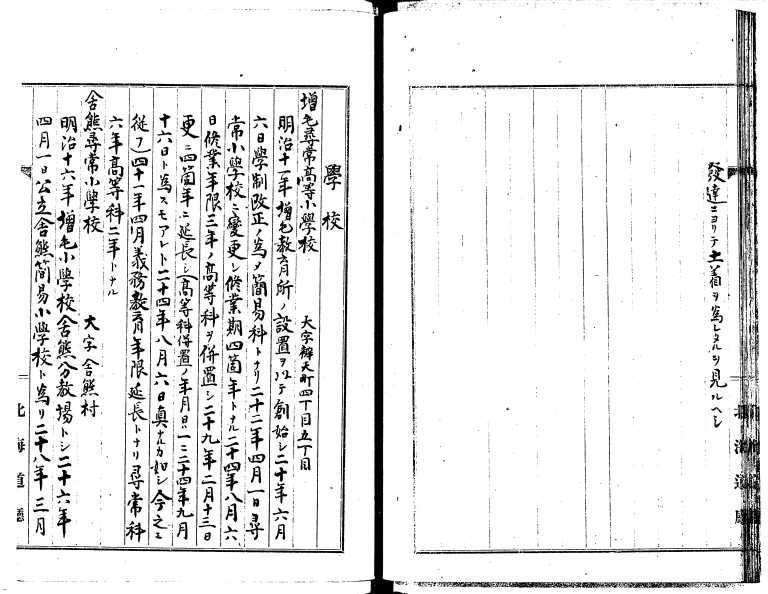 發達ニヨリテ土着ヲ爲レタルヲ見ルヘシ
北海道廳
學校
增毛尋常高等小學校 大字辨天町四丁目五丁目
明治十一年增毛教育所ノ設置ヲ以テ創始シ二十年六月
六日學制改正ノ爲メ簡易科トナリ二十二年四月一日尋
常小學校ニ變更シ修業期四箇年トナル二十四年八月六
日修業年限三年ノ高等科ヲ併置シ二十九年二月十三日
更ニ四箇年ニ延長シ(高等科併置ノ年月日一ニ二十四年九月
十六日ト爲スモアレト二十四年八月六日眞ナルカ如シ今之ニ
從フ)四十一年四月義務教育年限延長トナリ尋常科
六年高等科二年トナル
舍熊尋常小學校 大字舍熊村
明治十六年增毛小學校舍熊分教場トシ二十六年
四月一日公立舍熊簡易小學校ト爲リ二十八年三月
北海道廳